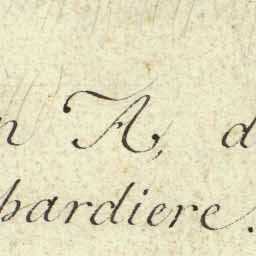 n A, d
hardiere.